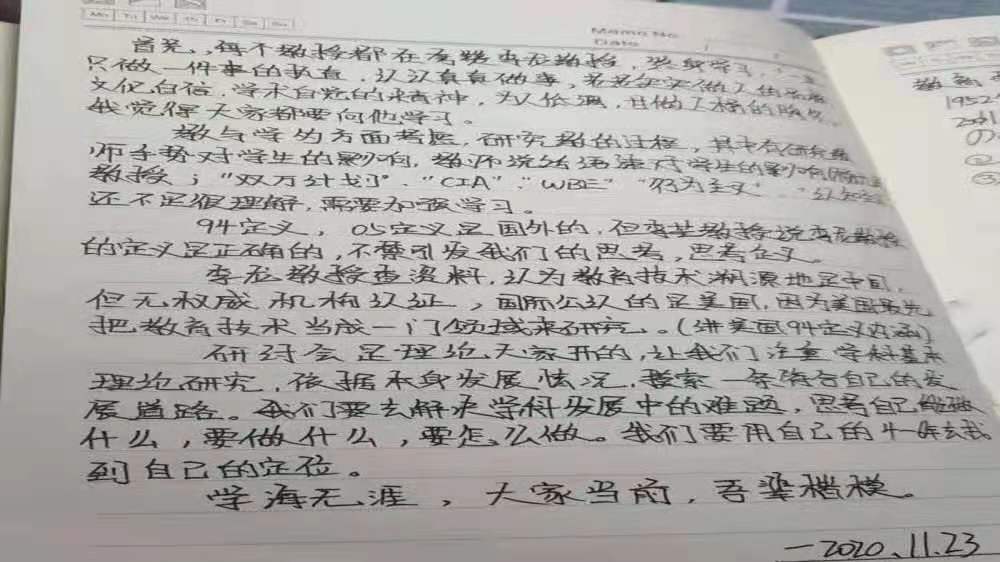 Mo Tu We Th Fr Sa Su
Memo No.
Date / /
首先,每个教授都在表达李龙教授,学习,
只做一件事的执着,认认真真做事,老老实实做人的
文化自信,学术自觉的精神,为人低调,甘做人梯的
我觉得大家都要向他学习。
教与学的方面考虑,研究教的过程,其中有研究教
师手势对学生的影响,教师说话语速对学生的影响
教授;“双万计划”.“CIA”.“WBE”“行为主义”“认知
还不足够理解,需要加强学习。
94定义,05定义是国外的,但李龙教授说李龙教授
的定义是正确的,不禁引发我们的思考,思考定义。
李龙教授查资料,认为教育技术溯源地是中国,
但无权威机构认证,国际公认的是美国,因为美国最先
把教育技术当成一门领域来研究。(讲美国94定义内涵)
研讨会是理论大家开的,让我们注重学科基本
理论研究,依据本身发展情况,探索一条符合自己的发
展道路。我们要去解决学科发展中的难题,思考自己能做
什么,要做什么,要怎么做。我们要用自己的4年去找
到自己的定位。
学海无涯,大家当前,吾辈楷模。
—2020.11.23
1952